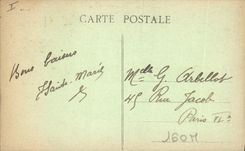 I
CARTE POSTALE
Bons baisers
Marie
Melle G. Arbellot
45 Rue Jacob
Paris
1607